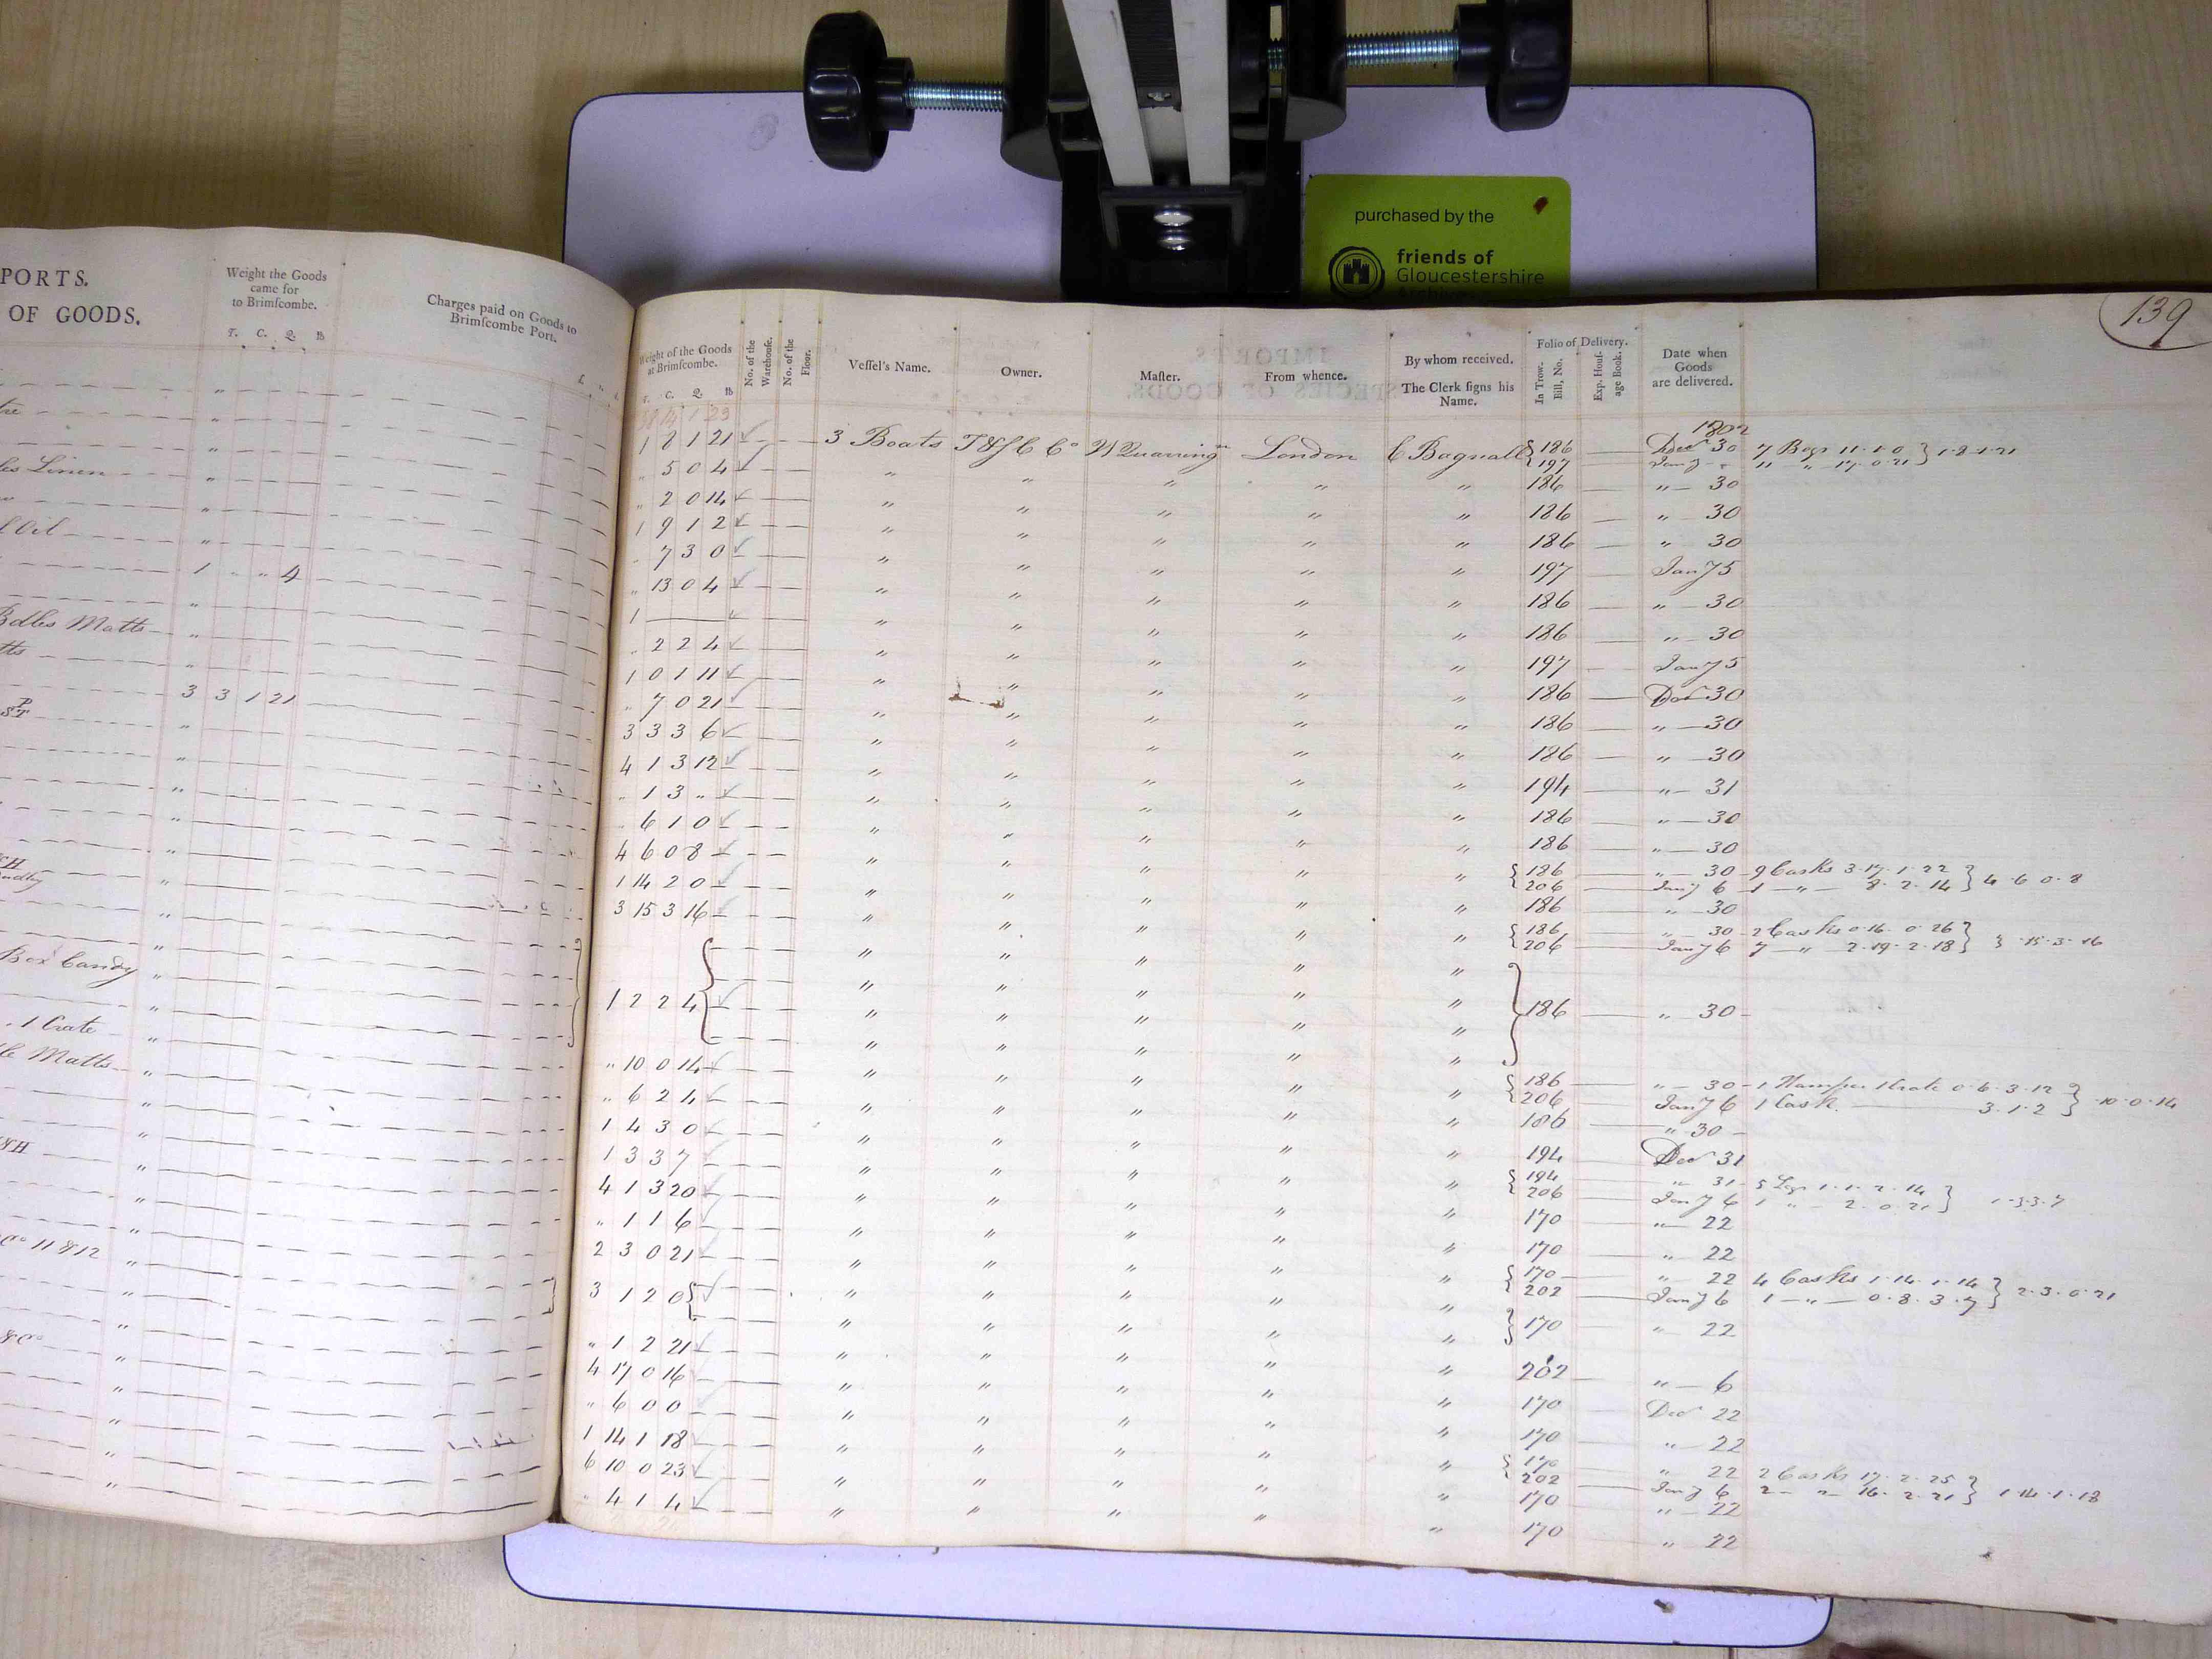 purchased by the
friends of
Gloucestershire
PORTS.
OF GOODS.
Weight the Goods
came for
to Brimſcombe.
T. C. Q ℔
Charges paid on Goods to
Brimſcombe Port.
les Linen
l Oil
1 " " 4
Bdles Matts
3 3 1 21
Box Candy
1 Crate
Matts
Co 11 & 12
& Co
139
Weight of the Goods
at Brimſcombe.
T. C. Q ℔
No. of the
Warehouſe.
No. of the
Floor.
Veſſel's Name.
Owner.
Maſter.
From whence.
By whom received.
The Clerk ſigns his
Name.
Folio of Delivery.
In Trow.
Bill, No.
Exp. Houſ-
age Book.
Date when
Goods
are delivered.
1802
1 8 1 21 3 Boats T & J C Co London C Bagnall 186 Decr 30 7 Bags 11 1 0 } 1 8 1 21
197 Jany 11 " 17 0 21
" 5 0 4 " " " " " 186 " 30
" 2 0 14 " " " " " 186 " 30
1 9 1 2 " " " " " 186 " 30
" 7 3 0 " " " " " 197 Jany 5
" 13 0 4 " " " " " 186 " 30
1 " " " " " 186 " 30
" 2 2 4 " " " " " 197 Jany 5
1 0 1 11 " " " " " 186 Decr 30
" 7 0 21 " " " " " 186 " 30
3 3 3 6 " " " " " 186 " 30
4 1 3 12 " " " " " 194 " 31
" 1 3 " " " " " " 186 " 30
" 6 1 0 " " " " " 186 " 30
4 6 0 8 " " " " " 186 " 30 9 Casks 3 17 1 22 } 4 6 0 8
206 Jany 6 1 " 8 2 14
1 14 2 0 " " " " " 186 " 30
3 15 3 16 " " " " " 186 " 30 2 Casks 0 16 0 26 } 3 15 3 16
206 Jany 6 7 " 2 19 2 18
1 2 2 4 " " " " " 186 " 30
" 10 0 14 " " " " " 186 " 30 1 Hamper 1 Crate 0 6 3 12 } 10 0 14
206 Jany 6 1 Cask 3 1 2
" 6 2 4 " " " " " 186 " 30
1 4 3 0 " " " " " 194 Decr 31
1 3 3 7 " " " " " 194 " 31 5 1 1 2 14 } 1 3 3 7
206 Jany 6 1 " 2 0 21
4 1 3 20 " " " " " 170 " 22
" 1 1 6 " " " " " 170 " 22
2 3 0 21 " " " " " 170 " 22 4 Casks 1 14 1 14 } 2 3 0 21
202 Jany 6 1 " 0 8 3 7
3 1 2 0 " " " " " 170 " 22
" 1 2 21 " " " " " 202 " 6
4 17 0 16 " " " " " 170 Decr 22
" 6 0 0 " " " " " 170 " 22
1 14 1 18 " " " " " 170 " 22 2 Casks 17 2 25 } 1 14 1 18
202 Jany 6 2 " 16 2 21
6 10 0 23 " " " " " 170 " 22
" 4 1 4 " " " " " 170 " 22